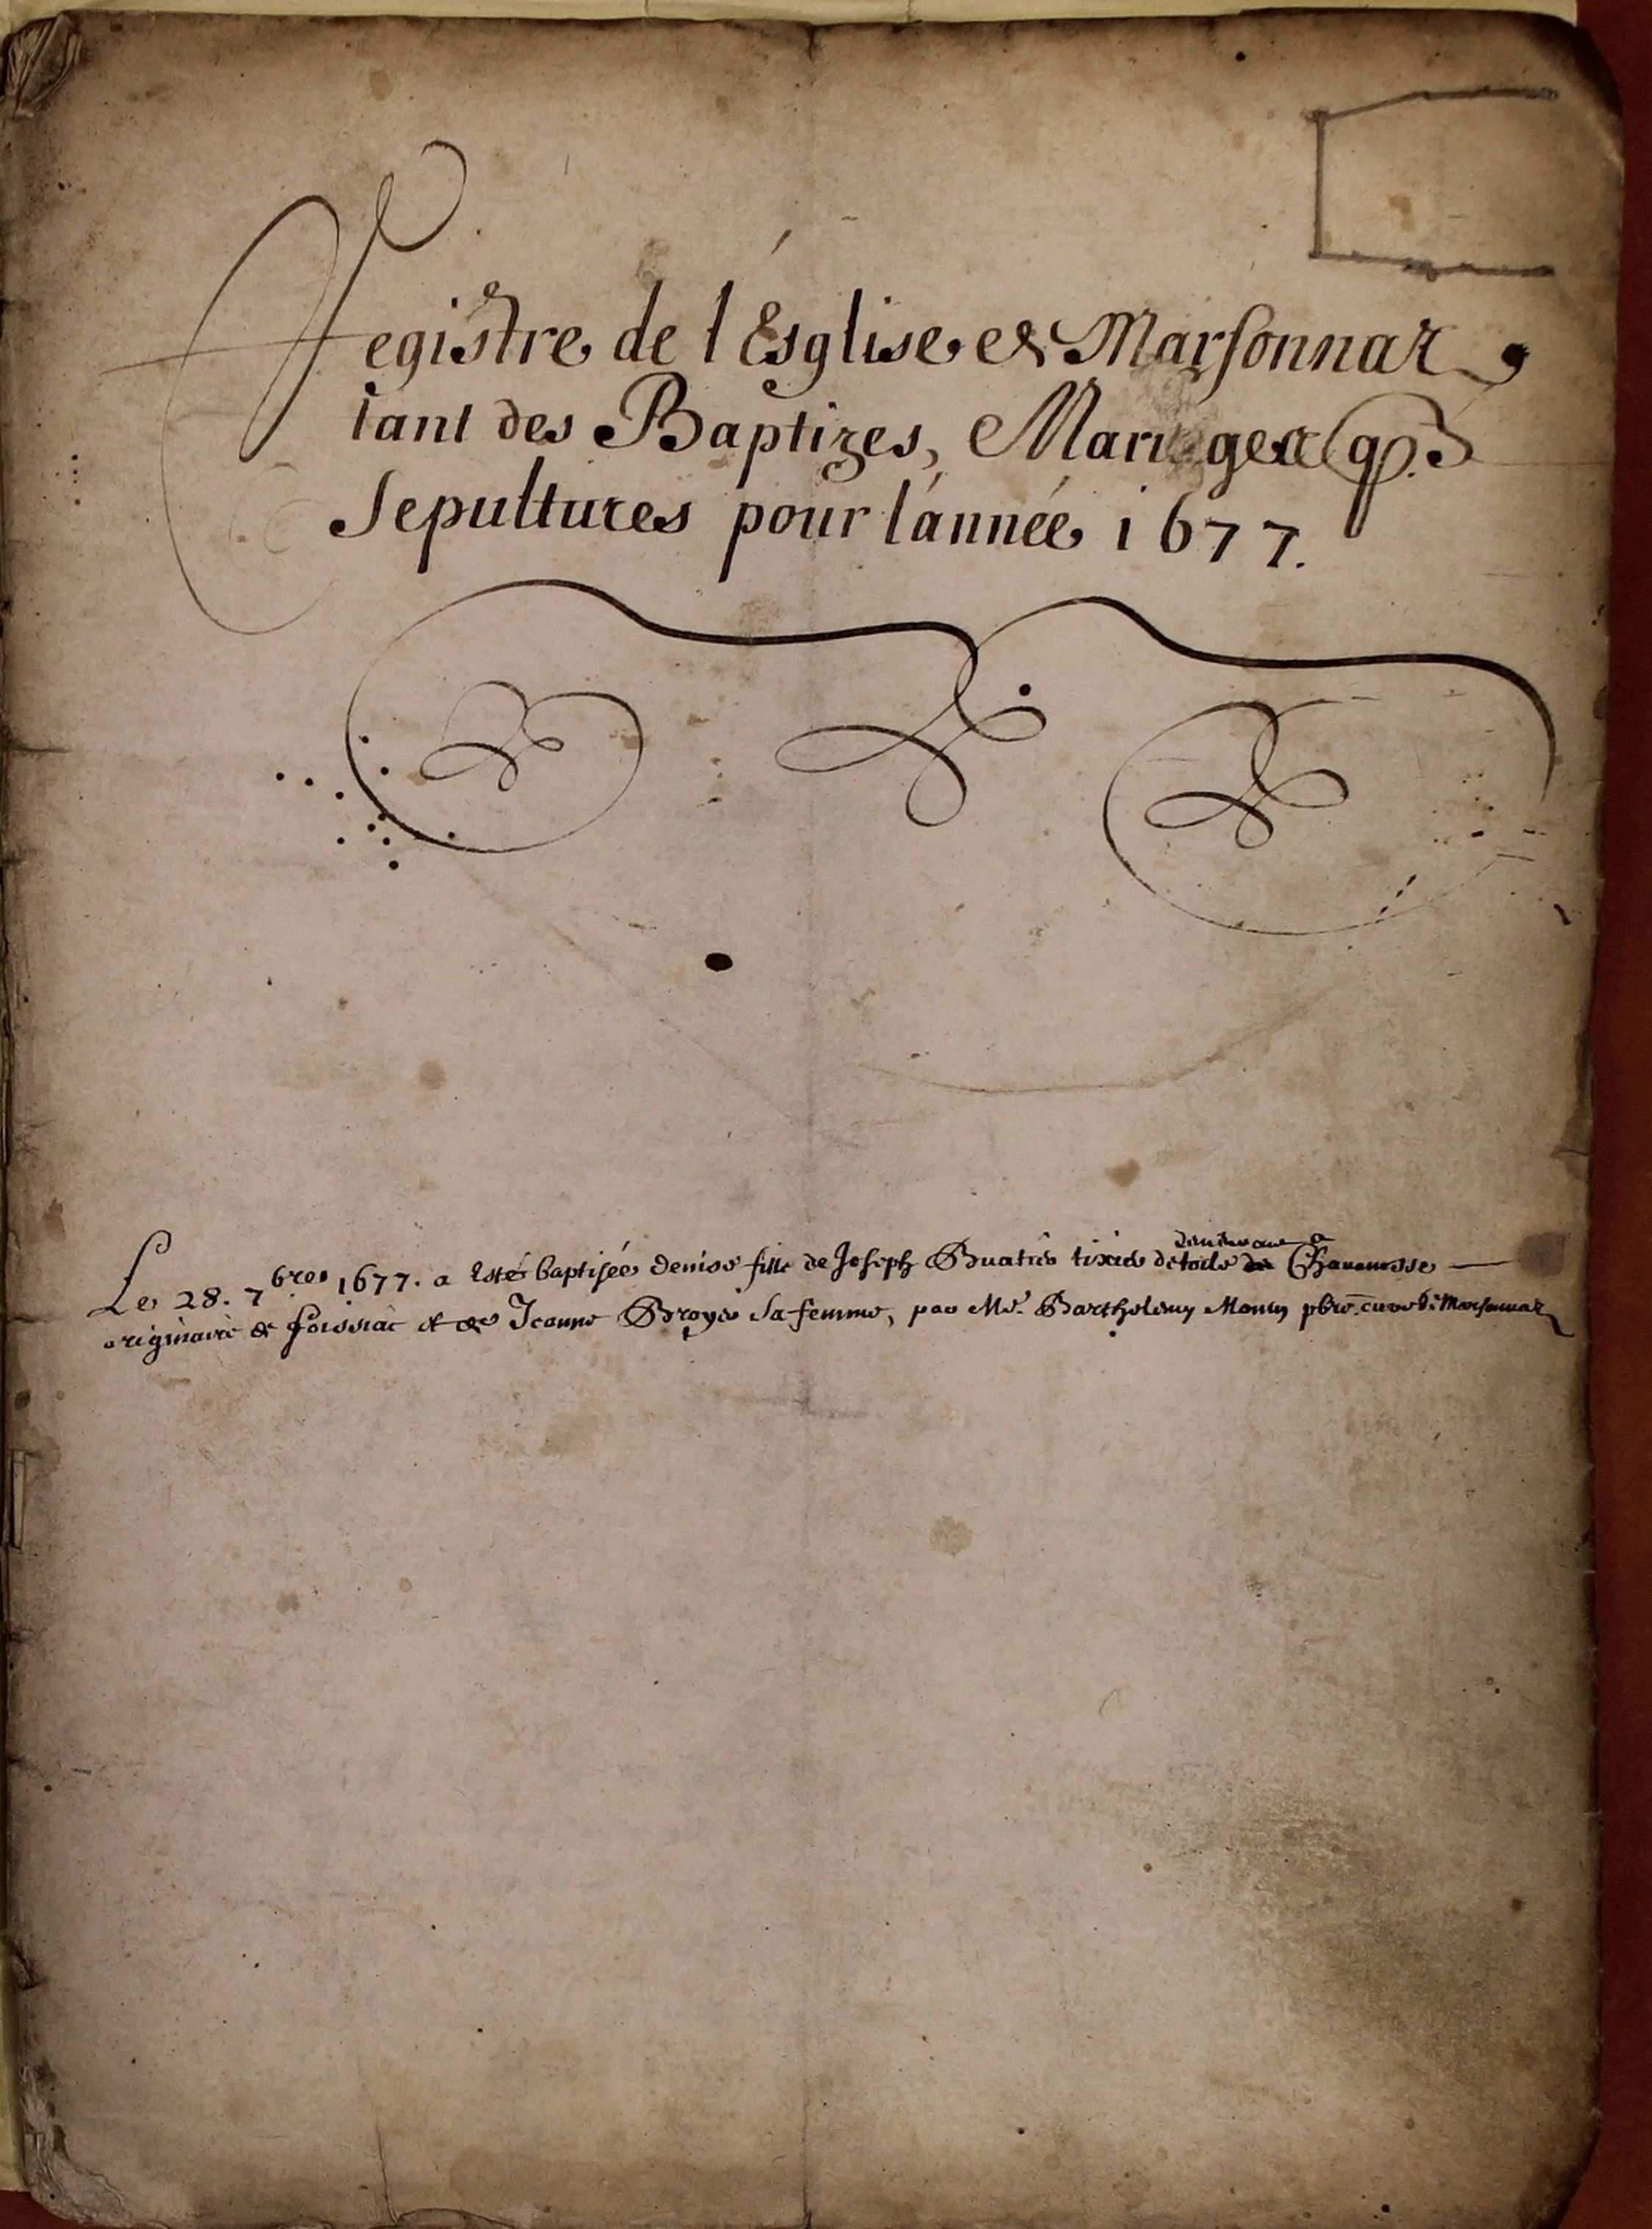 Registre de l'Esglise de Marsonnaz
tant des Baptizes, Mariages que
Sepultures pour l'année 1677.
demeurant a
Le 28. 7bre 1677. a Esté baptisée denise fille de Joseph Buatier tixier de toile de Chauanosse
originaire de foissiac et de Jeanne Broyer sa femme, par Mre. Bartholemy Monin pbre. curé de Marsonnaz